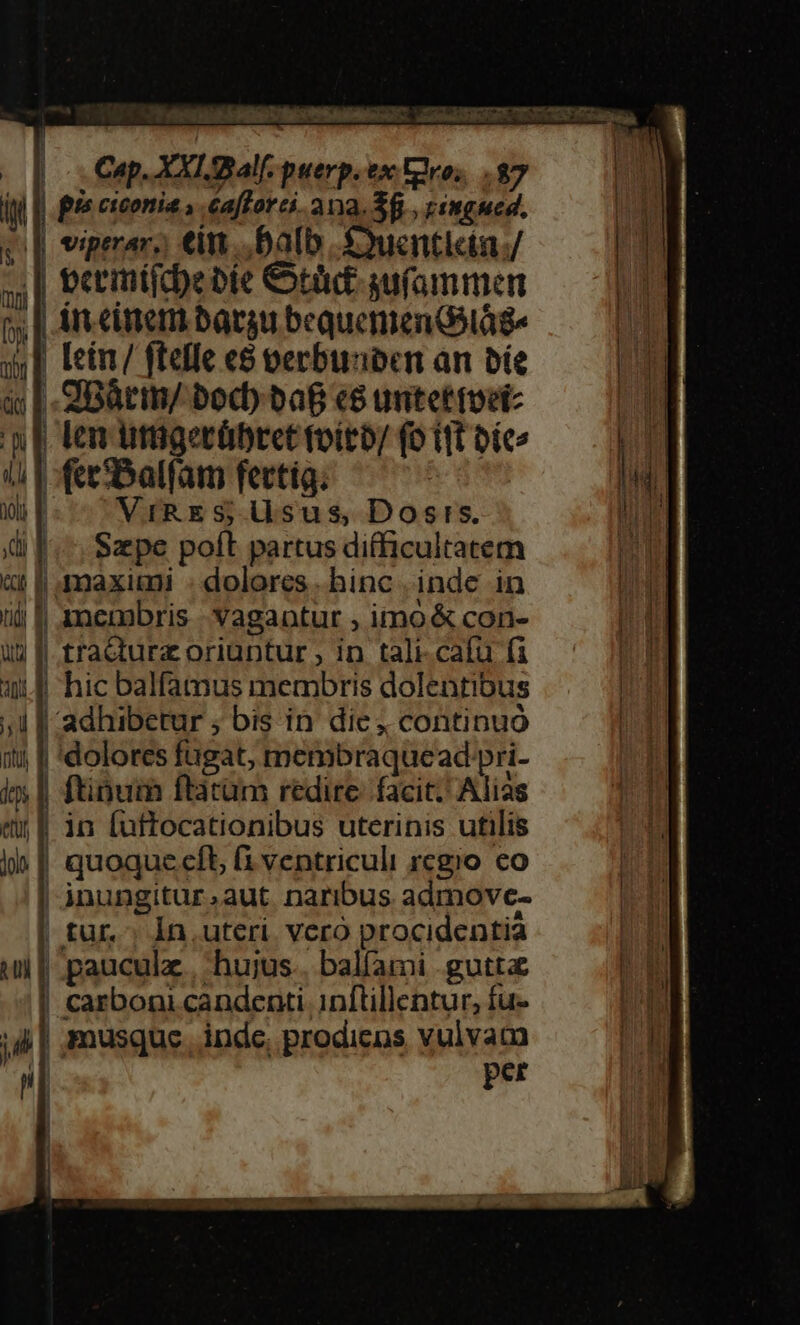 Cap. XXI. Balſ. puerp. ex 87
pis ciconiæ, caſtorei. ana. ℥ß, pingued.
viperar. ein halb Quentlein/
vermiſche die Stück zuſammen
in einem darzu bequemen Gläs-
lein/ ſtelle es verbunden an die
Wärm/ doch daß es unterwei-
len umgerühret wird/ ſo iſt die-
ſer Balſam fertig.
VIRES, Usus, Dosis.
Sæpe poſt partus difficultatem
maximi dolores hinc inde in
membris vagantur, imo & con-
tracturæ oriuntur, in tali caſu ſi
hic balſamus membris dolentibus
adhibetur, bis in die, continuò
dolores fugat, membraque ad pri-
ſtinum ſtatum redire facit. Alias
in ſuffocationibus uterinis utilis
quoque eſt, ſi ventriculi regio eo
inungitur, aut naribus admove-
tur. In uteri verò procidentiâ
pauculæ hujus balſami guttæ
carboni candenti inſtillentur, fu-
musque inde prodiens vulvam
per